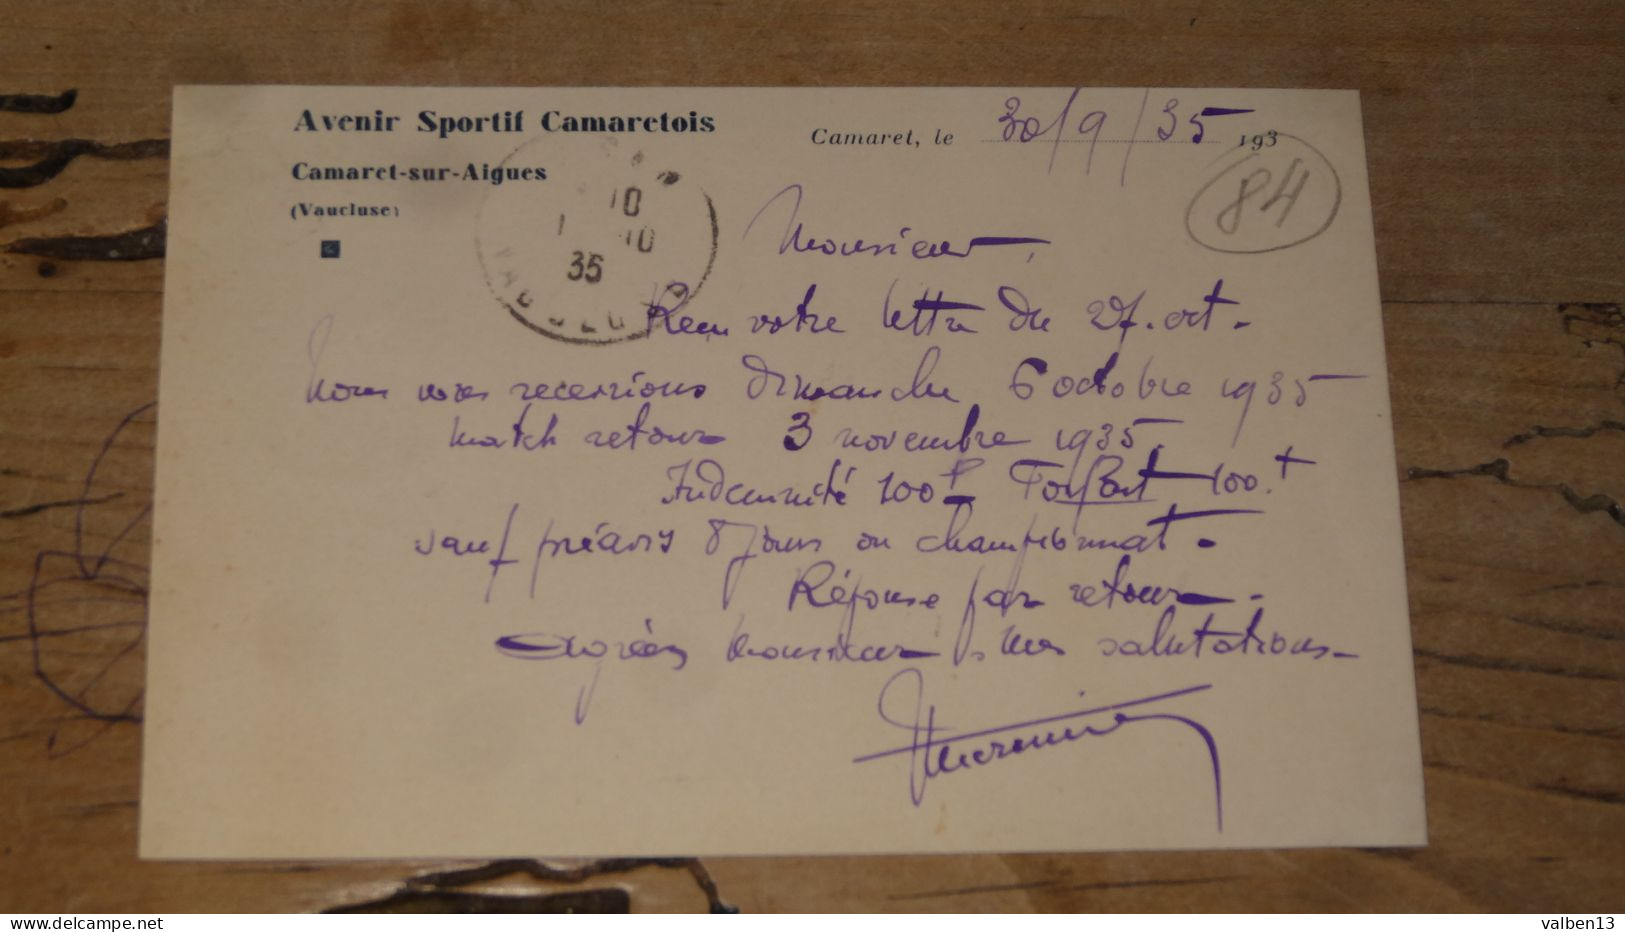 Avenir Sportif Camaretois
Camaret-sur-Aigues
(Vaucluse)
Camaret, le 30/9/35 193
84
10
1 10
35
VAUCLUSE
Monsieur,
Reçu votre lettre du 27. oct.
Nous vous recevrions dimanche 6 octobre 1935
match retour 3 novembre 1935.
Indemnité 100f Forfait 100.f
sauf préavis 8 jours ou championnat.
Réponse par retour.
Agréez Monsieur, mes salutations.
delcampe.net
valben13